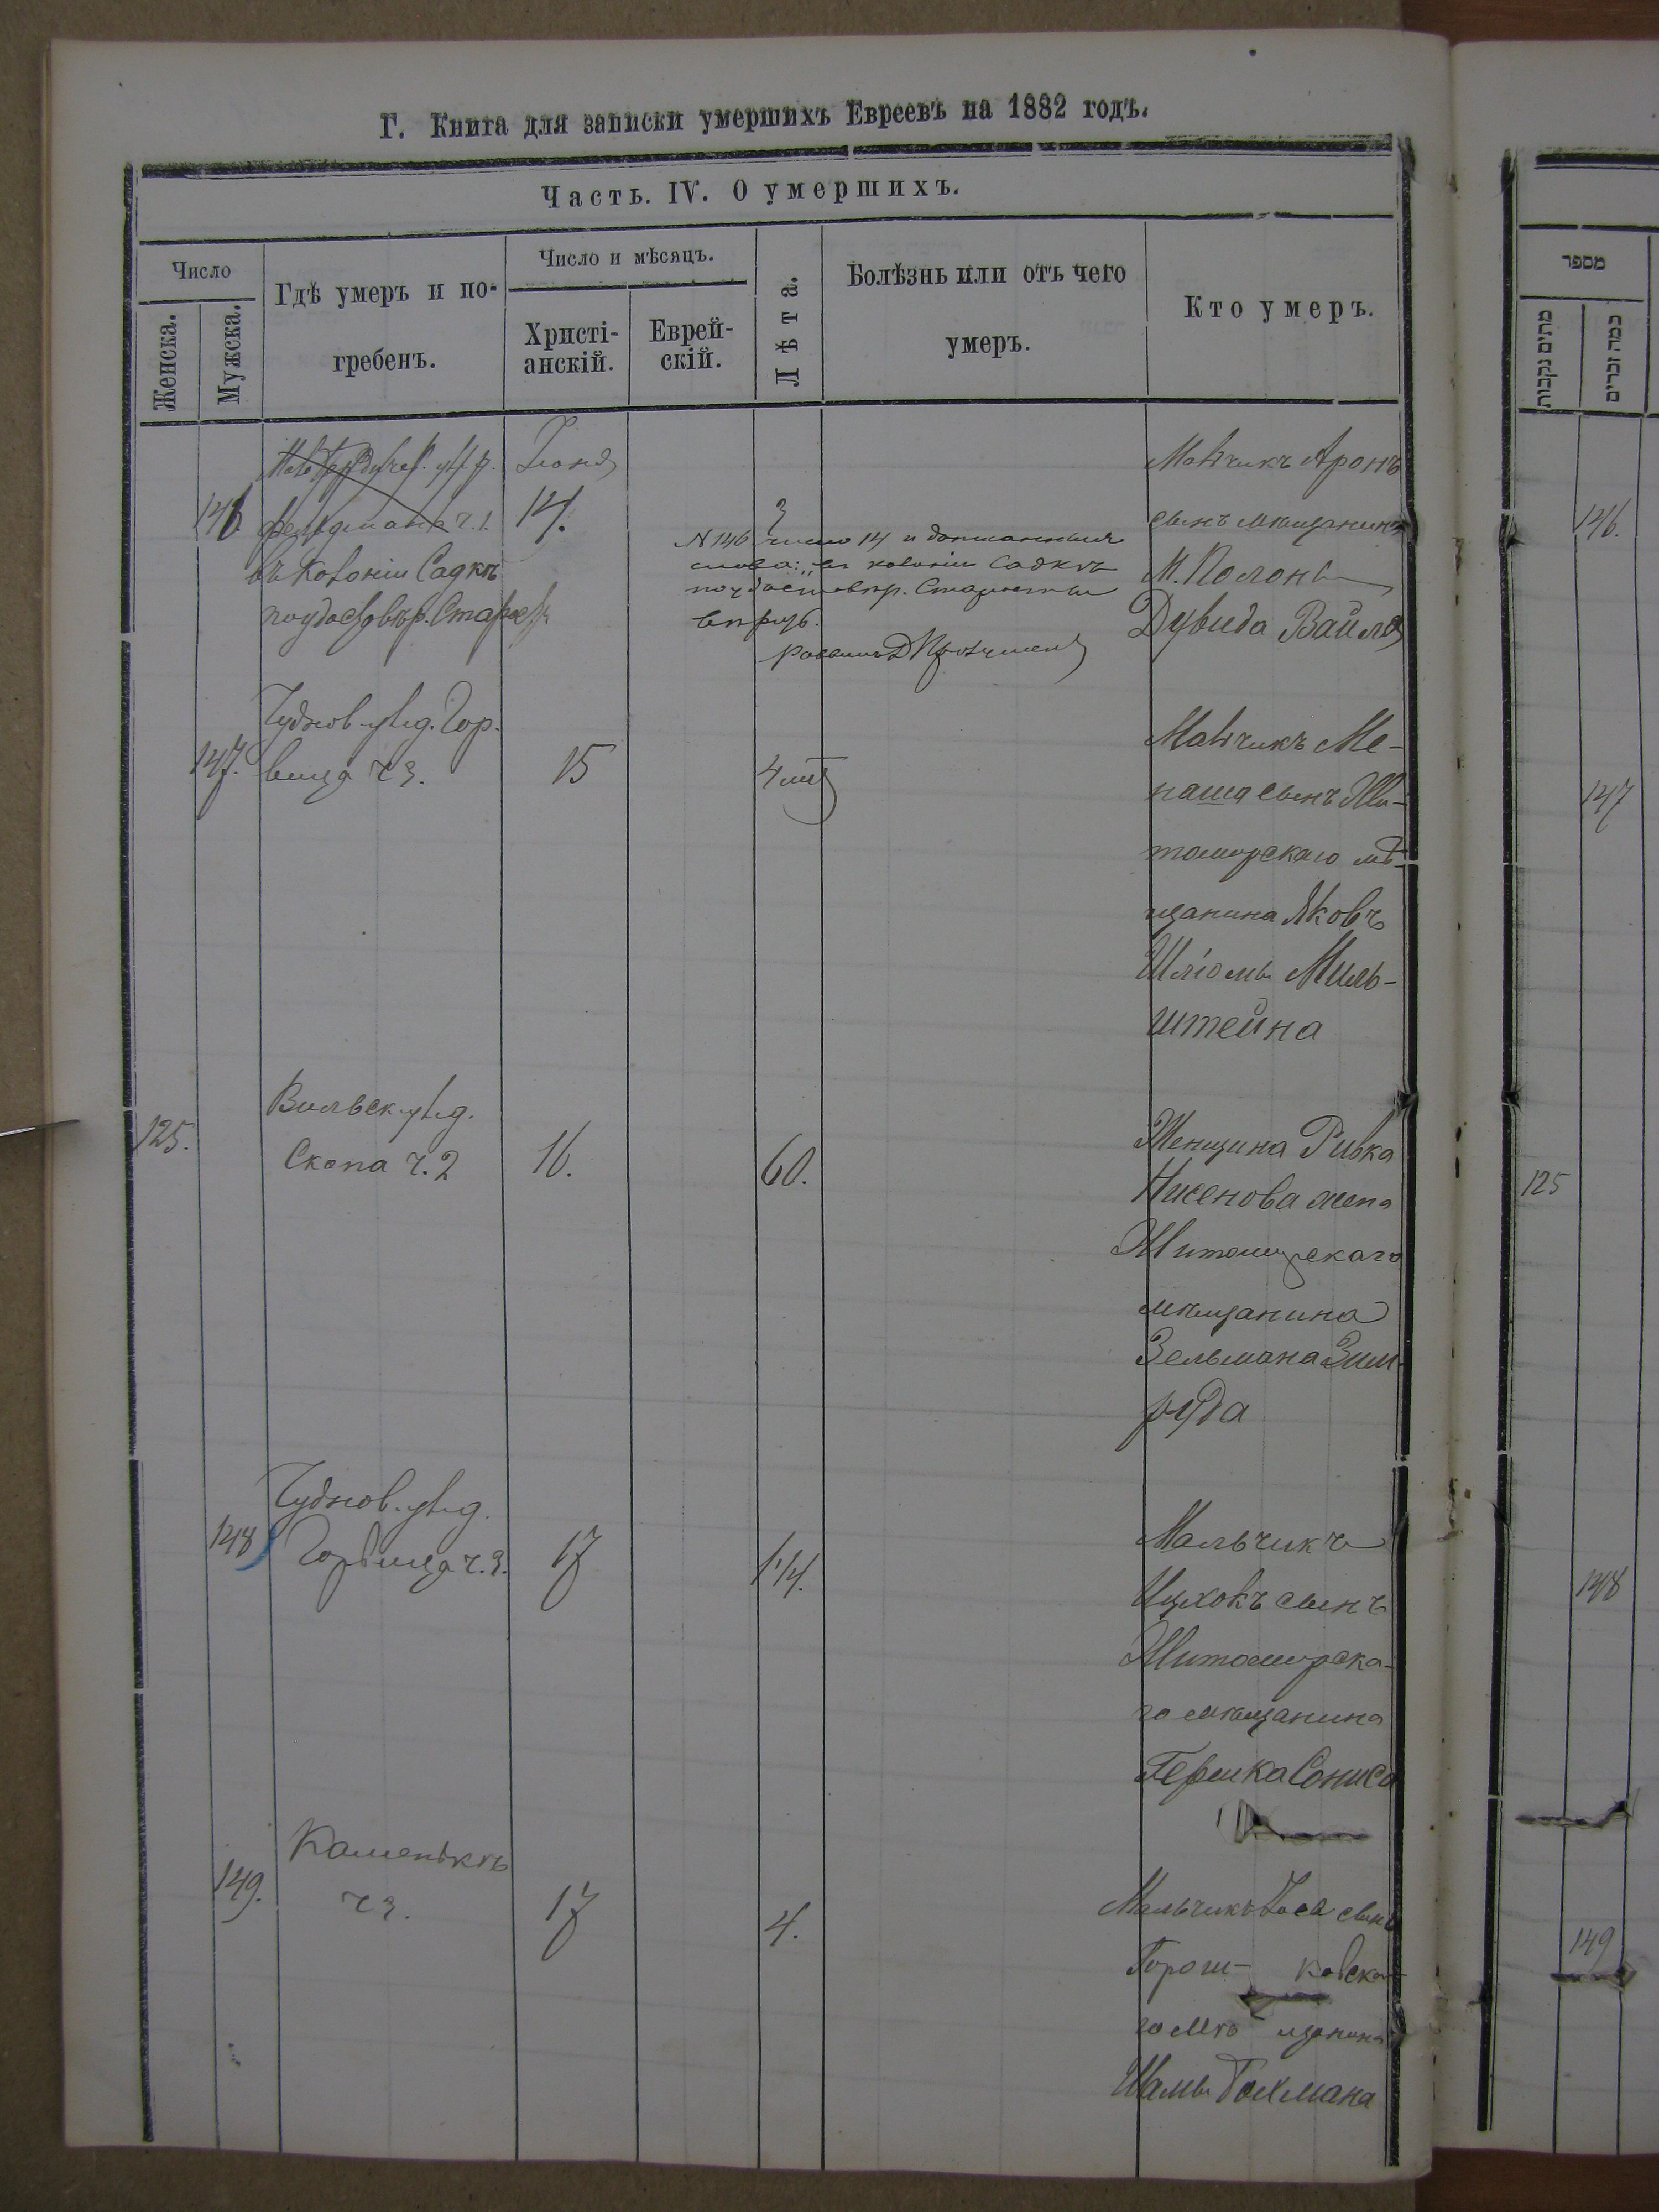 Г. Книга для записки умершихъ Евреевъ на 1882 годъ.
Часть. IV. О умершихъ.
Число
Женска.
Мужска.
Гдѣ умеръ и по-
гребенъ.
Число и мѣсяцъ.
Христі-
анскій.
Еврей-
скій.
Лѣта.
Болѣзнь или отъ чего
умеръ.
Кто умеръ.
146
фельдмана ч. 1.
въ колоніи Садкъ
по удостовѣр. Старосты
Іюня
14.
3
N 146 число 14 и дописанныя
слова: „въ колоніи Садкъ
по удостовѣр. Старосты
вѣрны.
Мальчикъ Аронъ
сынъ мѣщанина
М. Полон
Дувида Вайля
147.
Чуднов. улиц. Гор.
вица ч 3.
15
4 м
Мальчикъ Ме-
наша сынъ Жи-
томирскаго мѣ-
щанина Яковъ
Шліомы Миль-
штейна
125.
Вильск. улиц.
Скопа ч. 2
16.
60.
Женщина Ривка
Нисенова жена
Житомирскаго
мѣщанина
Зельмана Зим-
руда
148
Чуднов. улиц.
Горвица ч. 3.
17
1 1/4.
Мальчикъ
Ицхокъ сынъ
Житомирска-
го мѣщанина
Гершка Сониса
149.
Каменькъ
ч 3.
17
4.
Мальчикъ Іосъ сынъ
Горош- ковска-
го мѣ щанина
Шамы Гохмана
מספר
146.
147
125
148
149